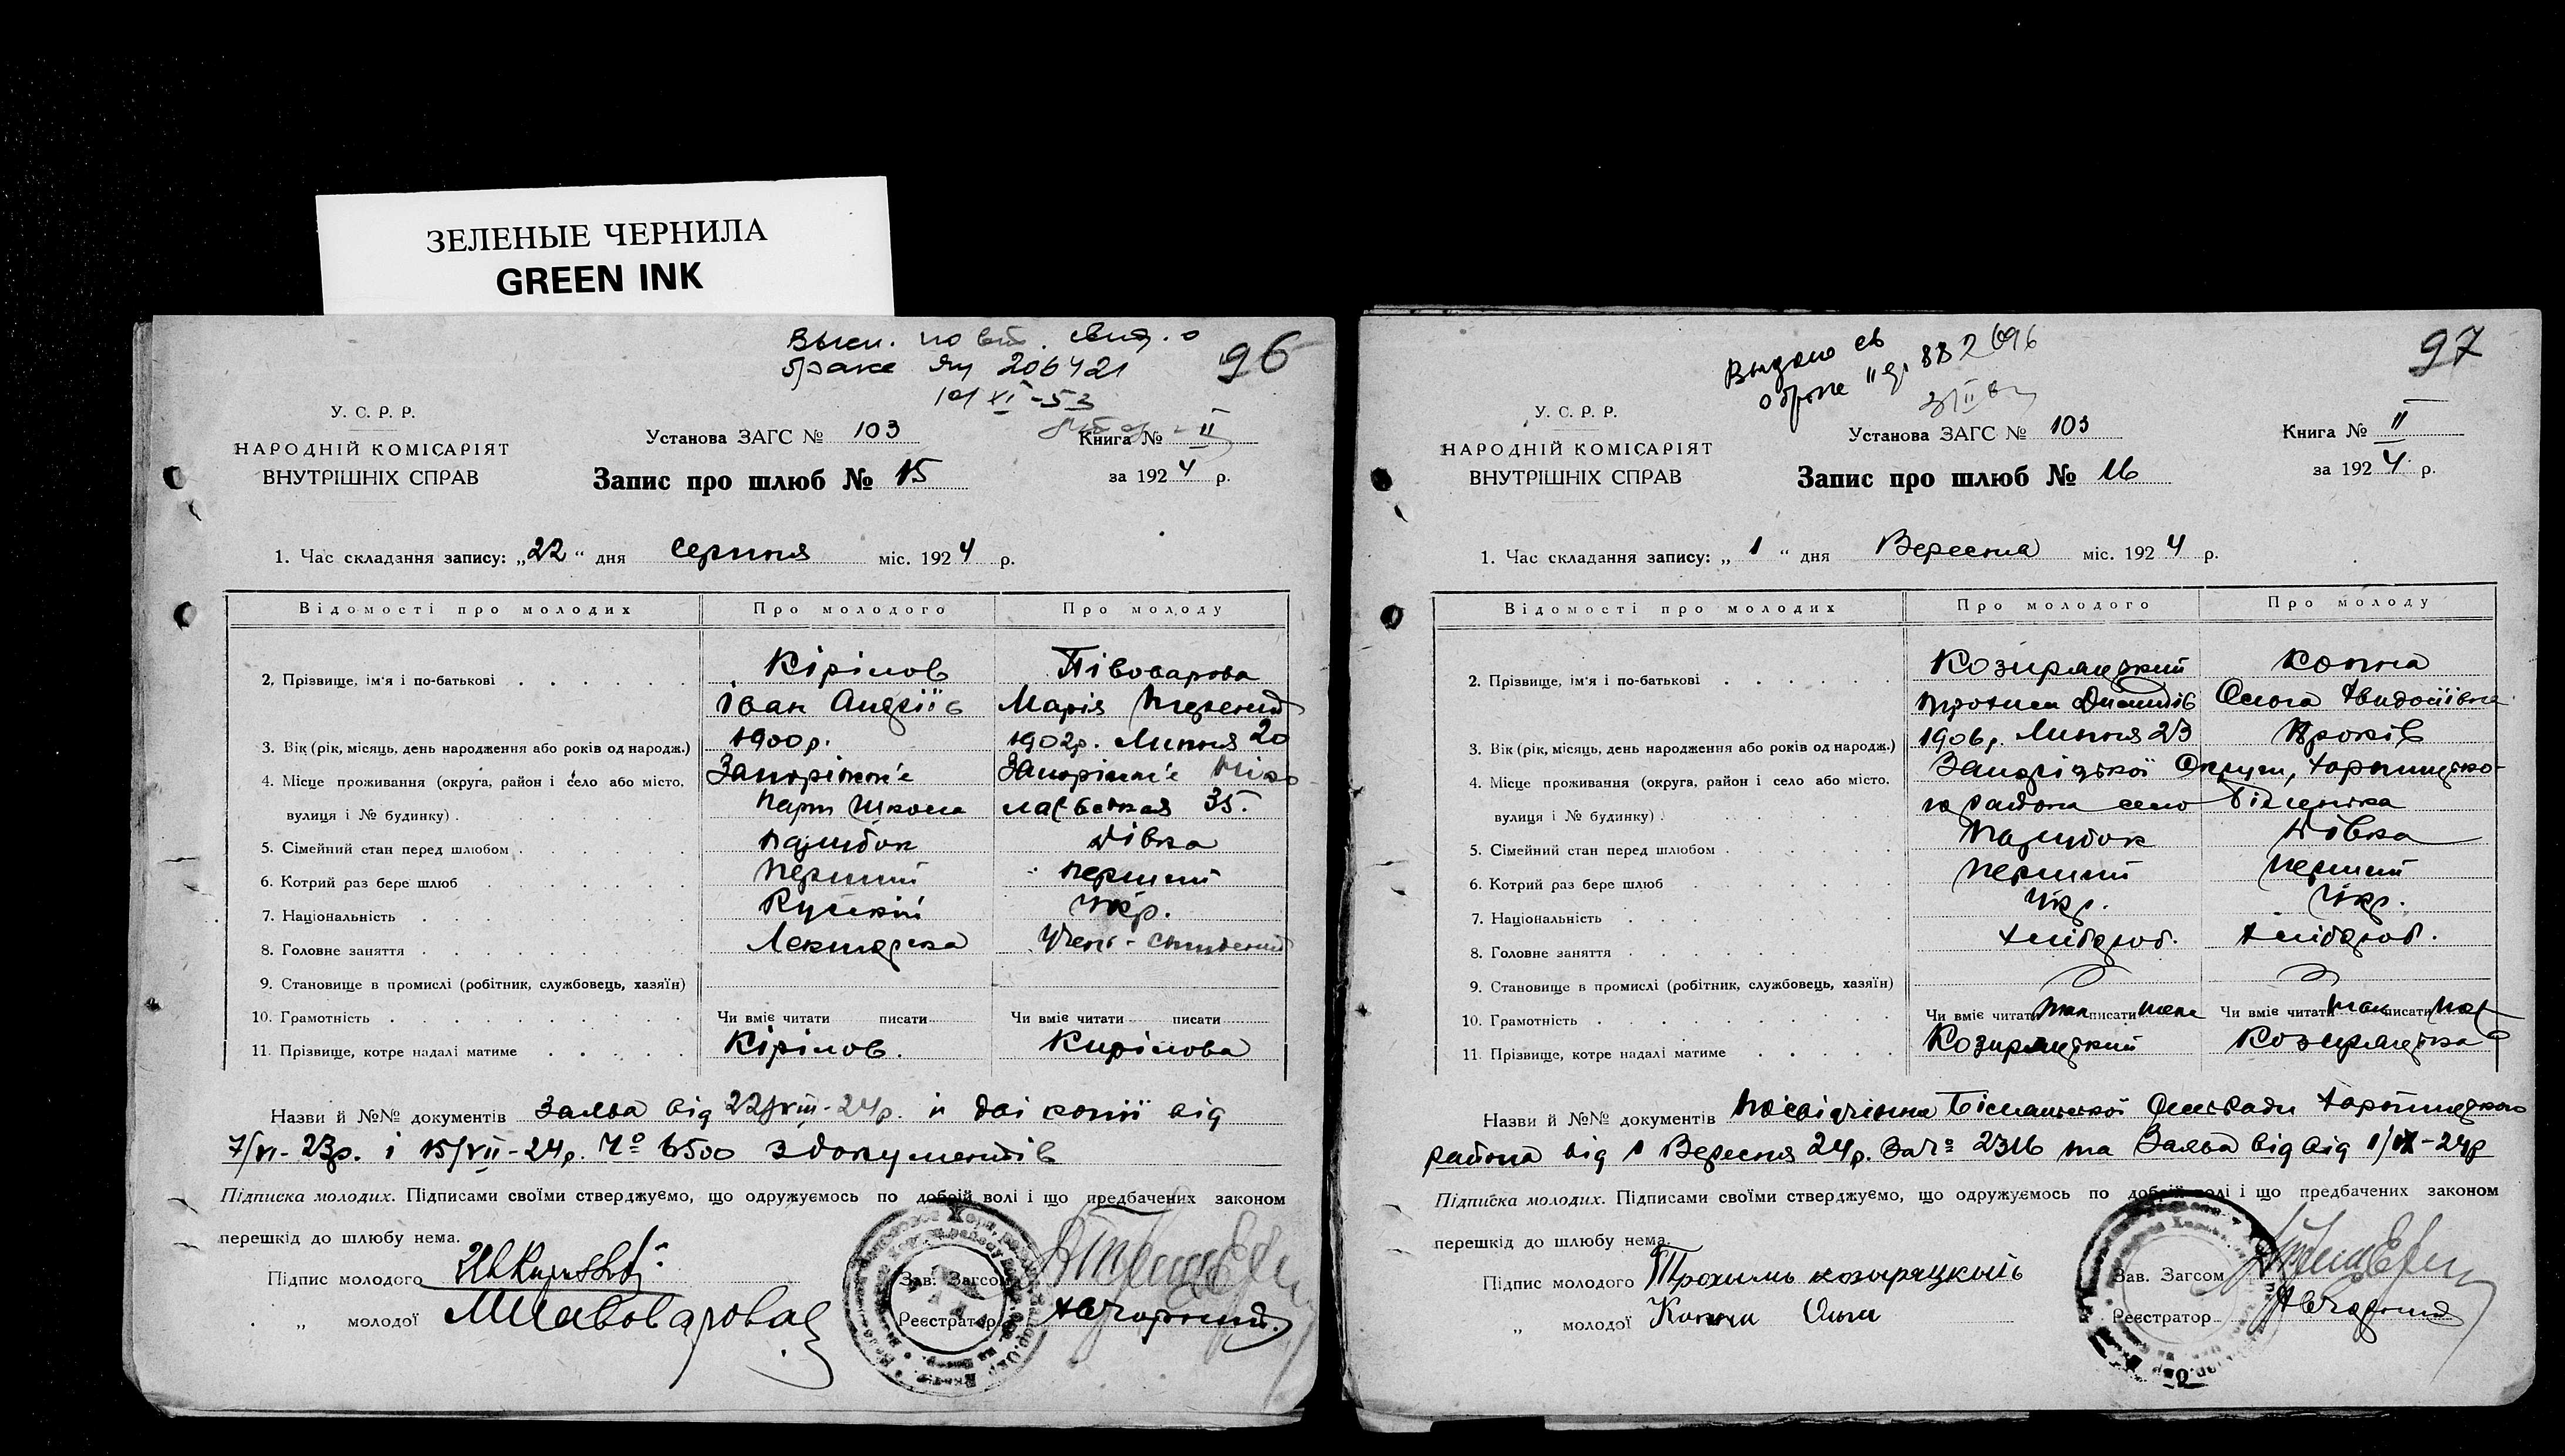 ЗЕЛЕНЫЕ ЧЕРНИЛА
GREEN INK
браке 206421
XI-53
96
У. С. Р. Р.
НАРОДНІЙ КОМІСАРІЯТ
ВНУТРІШНІХ СПРАВ
Установа ЗАГС № 103
Книга № II
Запис про шлюб № 15
за 1924 р.
1. Час складання запису: „22“ дня серпня міс. 1924 р.
Відомості про молодих Про молодого Про молоду
2. Прізвище, ім'я і по-батькові Кірілов Півоварова
Іван Андріїв Марія
3. Вік (рік, місяць, день народження або років од народж.) 1900р. 1902р. Липня 20
4. Місце проживання (округа, район і село або місто, Запоріжж'є Запоріжж'є
вулиця і № будинку) парт школа 35.
5. Сімейний стан перед шлюбом парубок дівка
6. Котрий раз бере шлюб перший перший
7. Національність Руський Укр.
8. Головне заняття
9. Становище в промислі (робітник, службовець, хазяїн)
10. Грамотність Чи вміє читати писати Чи вміє читати писати
11. Прізвище, котре надалі матиме Кірілов. Кирілова
Назви й №№ документів Заява від 22/VIII-24р. и дві копії від
7/VI-23р. і 15/VII-24р. № 6500 з документів
Підписка молодих. Підписами своїми стверджуємо, що одружуємось по добрій волі і що предбачених законом
перешкід до шлюбу нема.
Підпис молодого
Зав. Загсом
„ молодої МПивоварова
Реєстратор
Выдано св
о браке 882696
97
У. С. Р. Р.
НАРОДНІЙ КОМІСАРІЯТ
ВНУТРІШНІХ СПРАВ
Установа ЗАГС № 103
Книга № II
Запис про шлюб № 16
за 1924 р.
1. Час складання запису: „1“ дня Вересня міс. 1924 р.
Відомості про молодих Про молодого Про молоду
2. Прізвище, ім'я і по-батькові Козиряцький Копча
Трохим Ольга
3. Вік (рік, місяць, день народження або років од народж.) 1906р. Липня 23 років
4. Місце проживання (округа, район і село або місто, Запорізької Округи, Хортицько-
вулиця і № будинку) го района село Біленька
5. Сімейний стан перед шлюбом Парубок Дівка
6. Котрий раз бере шлюб перший перший
7. Національність Укр. Укр.
8. Головне заняття хлібороб. хлібороб.
9. Становище в промислі (робітник, службовець, хазяїн)
10. Грамотність Чи вміє читати так писати так Чи вміє читати так писати так
11. Прізвище, котре надалі матиме Козиряцький Козиряцька
Назви й №№ документів Посвідчення Сільради Хортицького
района від 1 Вересня 24р. За № 2316 та Заява від від 1/IX-24р
Підписка молодих. Підписами своїми стверджуємо, що одружуємось по добрій волі і що предбачених законом
перешкід до шлюбу нема.
Підпис молодого Трохимъ козыряцкый
Зав. Загсом
„ молодої Копчи Ольги
Реєстратор